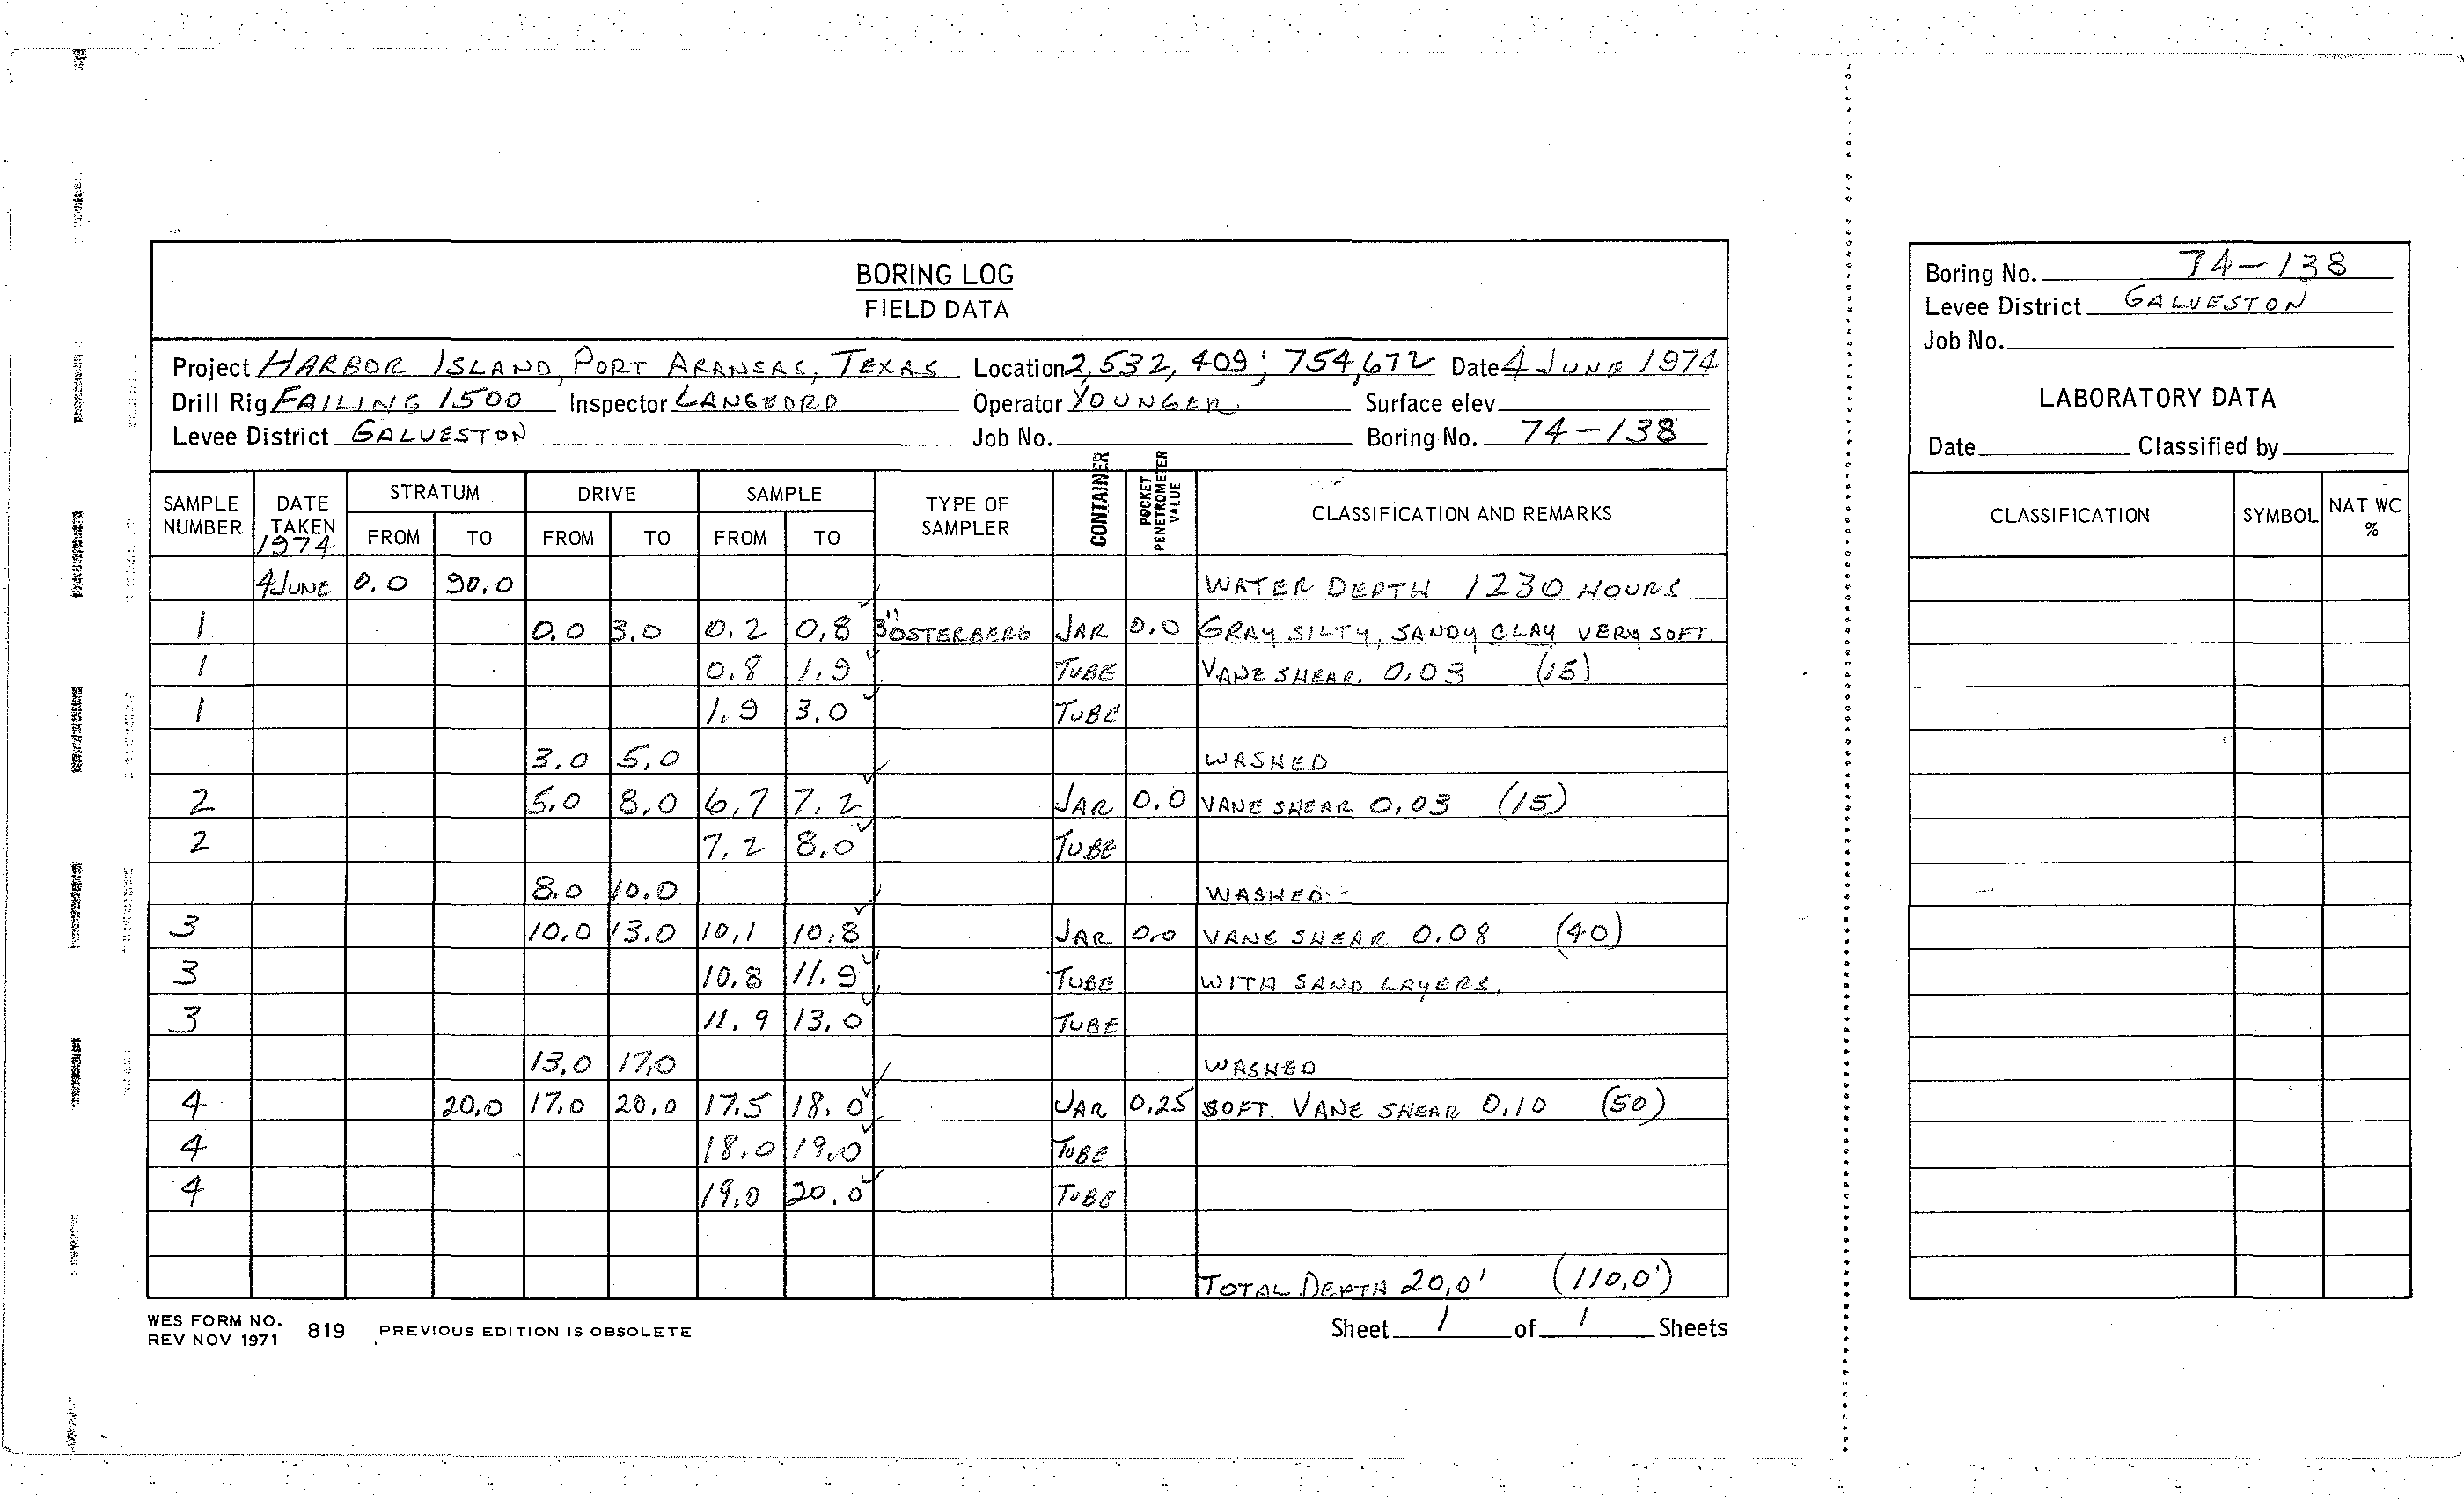 BORING LOG
FIELD DATA
Project HARBOR ISLAND, PORT ARANSAS, TEXAS Location 2,532,409; 754,672 Date 4 JUNE 1974
Drill Rig FAILING 1500 Inspector LANGFORD Operator YOUNGER Surface elev.
Levee District GALVESTON Job No. Boring No. 74-138
SAMPLE NUMBER DATE TAKEN 1974 STRATUM FROM TO DRIVE FROM TO SAMPLE FROM TO TYPE OF SAMPLER CONTAINER POCKET PENETROMETER VALUE CLASSIFICATION AND REMARKS
4 JUNE 0.0 90.0 WATER DEPTH 1230 HOURS
1 0.0 3.0 0.2 0.8 3" OSTERBERG JAR 0.0 GRAY SILTY, SANDY CLAY VERY SOFT.
1 0.8 1.9 TUBE VANE SHEAR. 0.03 (15)
1 1.9 3.0 TUBE
3.0 5.0 WASHED
2 5.0 8.0 6.7 7.2 JAR 0.0 VANE SHEAR 0.03 (15)
2 7.2 8.0 TUBE
8.0 10.0 WASHED
3 10.0 13.0 10.1 10.8 JAR 0.0 VANE SHEAR 0.08 (40)
3 10.8 11.9 TUBE WITH SAND LAYERS.
3 11.9 13.0 TUBE
13.0 17.0 WASHED
4 20.0 17.0 20.0 17.5 18.0 JAR 0.25 SOFT. VANE SHEAR 0.10 (50)
4 18.0 19.0 TUBE
4 19.0 20.0 TUBE
TOTAL DEPTH 20.0' (110.0')
WES FORM NO. 819 PREVIOUS EDITION IS OBSOLETE
REV NOV 1971
Sheet 1 of 1 Sheets
Boring No. 74-138
Levee District GALVESTON
Job No.
LABORATORY DATA
Date Classified by
CLASSIFICATION SYMBOL NAT WC %